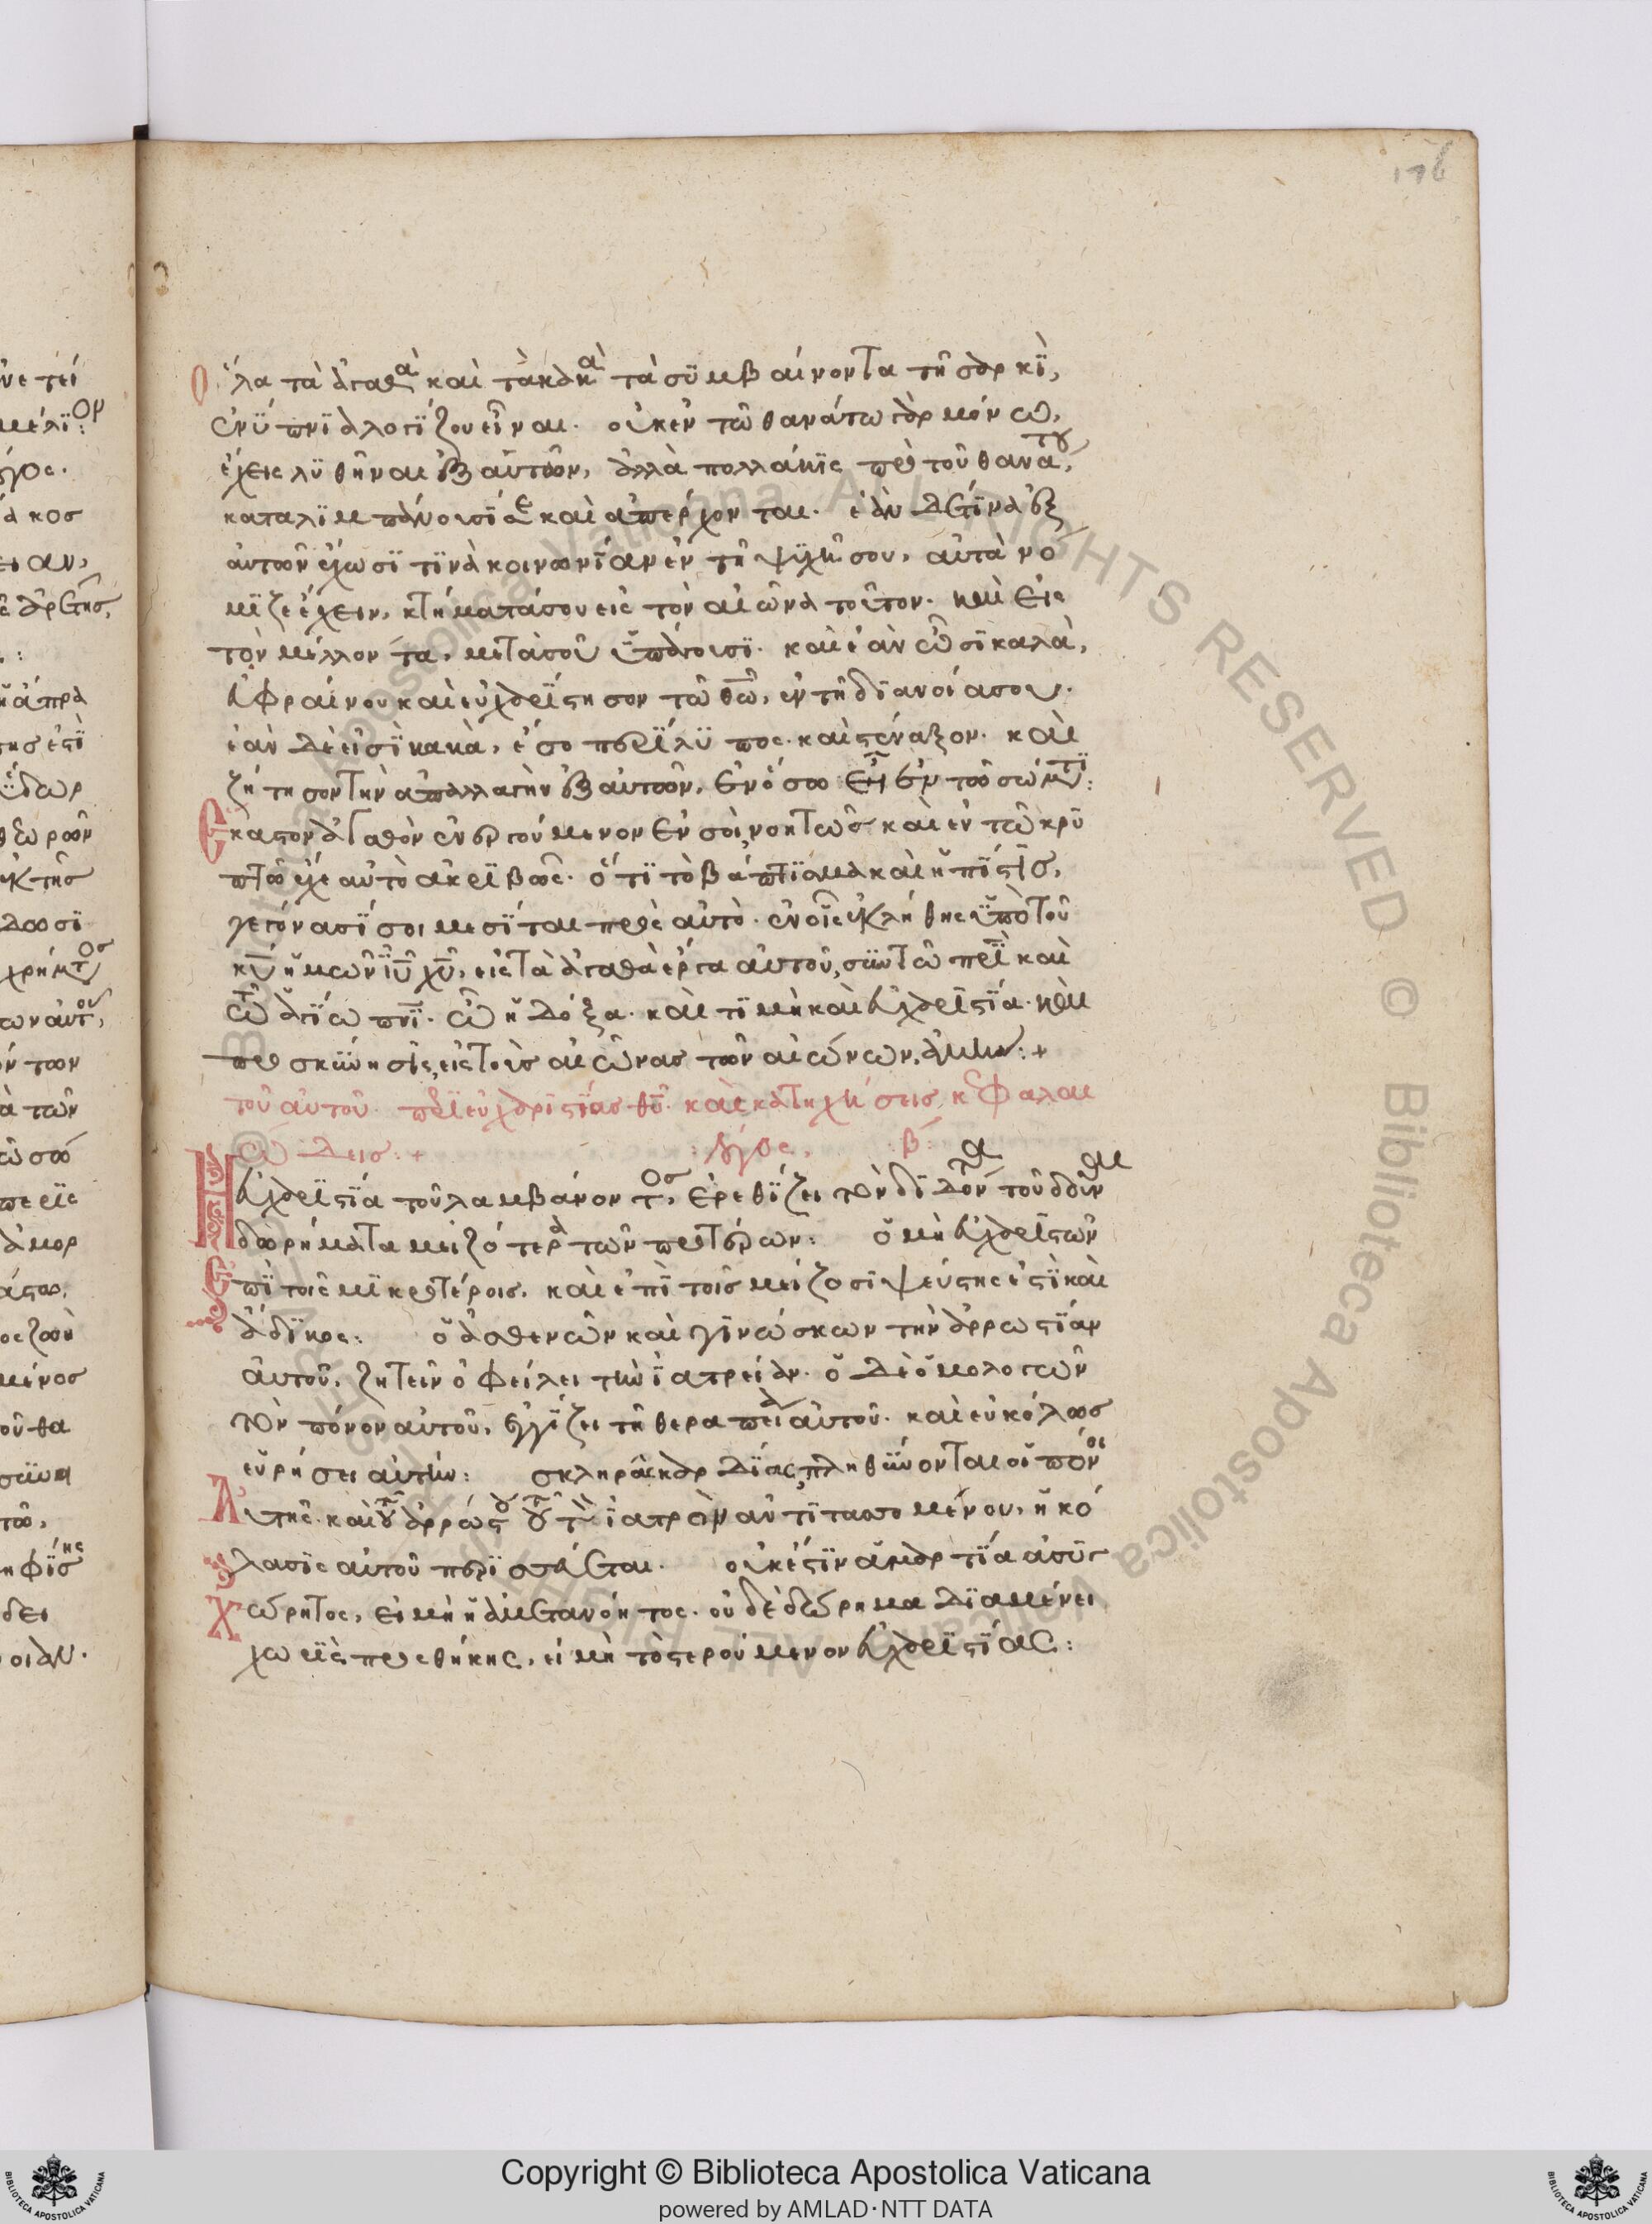 176
Ὅλα τὰ ἀγαθὰ καὶ τὰ κακὰ τὰ συμβαίνοντα τῆ σαρκὶ,
ἐνύπνια λογίζου εἶναι. οὐκ ἐν τῶ θανάτω γὰρ μόνω,
ἔχεις λυθῆναι ἐξ αὐτῶν, ἀλλὰ πολλάκις πρὸ τοῦ θανάτου,
καταλιμπάνουσί σε καὶ ἀπέρχονται. ἐὰν δέ τινα ἐξ
αὐτῶν ἔχωσι τινὰ κοινωνίαν ἐν τῆ ψυχῆ σου, αὐτὰ νό
μιζε ἔχειν, κτήματά σου εἰς τὸν αἰῶνα τοῦτον. καὶ εἰς
τὸν μέλλοντα, μετὰ σοῦ ὑπάγουσι. καὶ ἐὰν ὦσι καλὰ,
εὐφραίνου καὶ εὐχαρίστησον τῶ θῶ, ἐν τῆ διανοία σου.
ἐὰν δὲ εἰσὶ κακὰ, ἔσο περίλυπος. καὶ στέναξον. καὶ
ζήτησον τὴν ἀπαλλαγὴν ἐξ αὐτῶν, ἐν ὅσω εἶ ἐν τῶ σώματι:
Ἕκαστον ἀγαθὸν ἐνεργούμενον ἐν σοὶ νοητῶς καὶ ἐν τῶ κρυ
πτῶ ἔχε αὐτὸ ἀκριβῶς. ὅτι τὸ βάπτισμα καὶ ἡ πίστις,
γεγόνασί σοι μεσίται πρὸς αὐτὸ. ἐν οἷς ἐκλήθης ὑπὸ τοῦ
κυ ἡμῶν ιυ χυ, εἰς τὰ ἀγαθὰ ἔργα αὐτοῦ, σὺν τῶ πρὶ καὶ
τῶ ἁγίω πνι. ὧ ἡ δόξα. καὶ τιμὴ καὶ εὐχαριστία. καὶ
προσκύνησις, εἰς τοὺς αἰῶνας τῶν αἰώνων, ἀμήν:+
τοῦ αὐτοῦ. περὶ εὐχαριστίας θυ. καὶ κατηχήσεις κεφαλαι
ώδεις:+ λόγος, β:
Ἡ εὐχαριστία τοῦ λαμβάνοντος, ἐρεθίζει τὸν διδόντα τοῦ δοῦναι
δωρήματα μειζότερα τῶν προτέρων: ὁ μὴ εὐχαριστῶν
ἐπὶ τοῖς μικροτέροις, καὶ ἐπὶ τοῖς μείζοσι ψεύστης ἐστὶ καὶ
ἄδικος: ὁ ἀσθενῶν καὶ γινώσκων τὴν ἀρρωστίαν
αὐτοῦ, ζητεῖν ὀφείλει τὴν ἰατρείαν. ὁ δὲ ὁμολογῶν
τὸν πόνον αὐτοῦ, ἐγγίζει τῆ θεραπεία αὐτοῦ. καὶ εὐκόλως
εὑρήσει αὐτὴν: σκληρᾶς καρδίας, πληθύνονται οἱ πόνοι
αὐτῆς. καὶ τοῦ ἀρρώστου τοῦ τὸν ἰατρὸν ἀντιταττομένου, ἡ κό
λασις αὐτοῦ περισσεύεται. οὐκ ἔστιν ἁμαρτία ἀσυγ
χώρητος, εἰ μὴ ἡ ἀμετανόητος. οὐδὲ δώρημα διαμένει
χωρὶς προσθήκης, εἰ μὴ τὸ στερούμενον εὐχαριστίας:
Copyright © Biblioteca Apostolica Vaticana
powered by AMLAD·NTT DATA